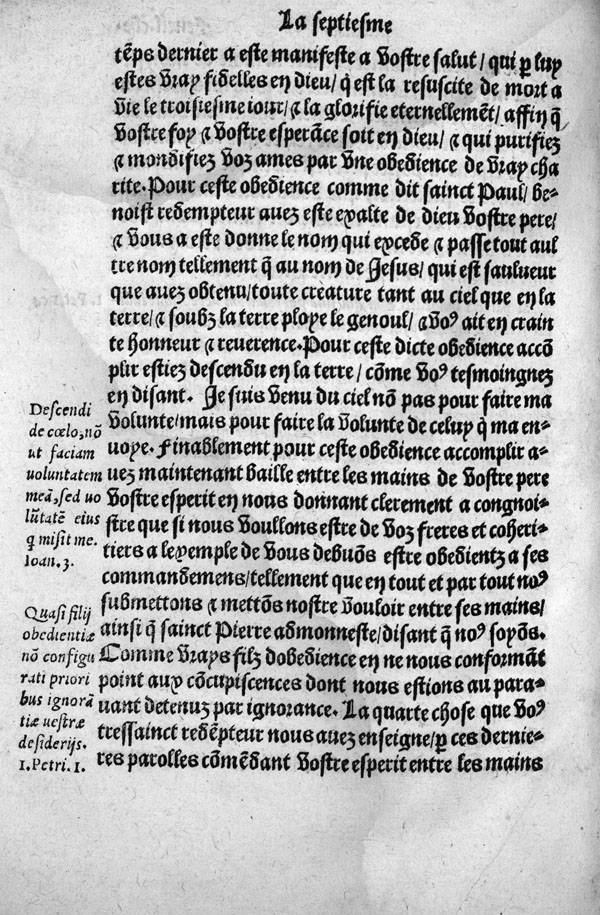 La septiesme
tẽps dernier a este manifeste a vostre salut/ qui ꝑ luy
estes vray fidelles en dieu/ q̃ est la resuscite de mort a
vie le troisiesme iour/ ⁊ la glorifie eternellemẽt/ affin q̃
vostre foy ⁊ vostre esperãce soit en dieu/ ⁊ qui purifiez
⁊ mondifiez voz ames par vne obedience de vray cha
rite. Pour ceste obedience comme dit sainct Paul/ be-
noist redempteur auez este exalte de dieu vostre pere/
⁊ vous a este donne le nom qui excede ⁊ passe tout aul
tre nom tellement q̃ au nom de Jesus/ qui est saulueur
que auez obtenu/ toute creature tant au ciel que en la
terre/ ⁊ soubz la terre ploye le genoul/ ⁊ voꝰ ait en crain
te honneur ⁊ reuerence. Pour ceste dicte obedience accõ
plir estiez descendu en la terre/ cõme voꝰ tesmoingnez
en disant. Je suis venu du ciel nõ pas pour faire ma
volunte/ mais pour faire la volunte de celuy q̃ ma en-
uoye. Finablement pour ceste obedience accomplir a-
uez maintenant baille entre les mains de vostre pere
vostre esperit en nous donnant clerement a congnoi-
stre que si nous voullons estre de voz freres et coheri-
tiers a lexemple de vous debuõs estre obedientz a ses
commandemens/ tellement que en tout et par tout noꝰ
submettons ⁊ mettõs nostre vouloir entre ses mains/
ainsi q̃ sainct Pierre admonneste/ disant q̃ noꝰ soyõs.
Comme vrays filz dobedience en ne nous conformãt
point aux cõcupiscences dont nous estions au para-
uant detenuz par ignorance. La quarte chose que voꝰ
tressainct redẽpteur nous auez enseigne/ ꝑ ces dernie-
res parolles cõmẽdant vostre esperit entre les mains
Descendi
de cœlo, nõ
ut faciam
uoluntatem
meã, sed uo
lũtatẽ eius
q̃ misit me.
Ioan. 3.
Quasi filij
obedientiæ
nõ configu
rati priori
bus ignorã
tiæ uestræ
desiderijs.
1. Petri. 1.